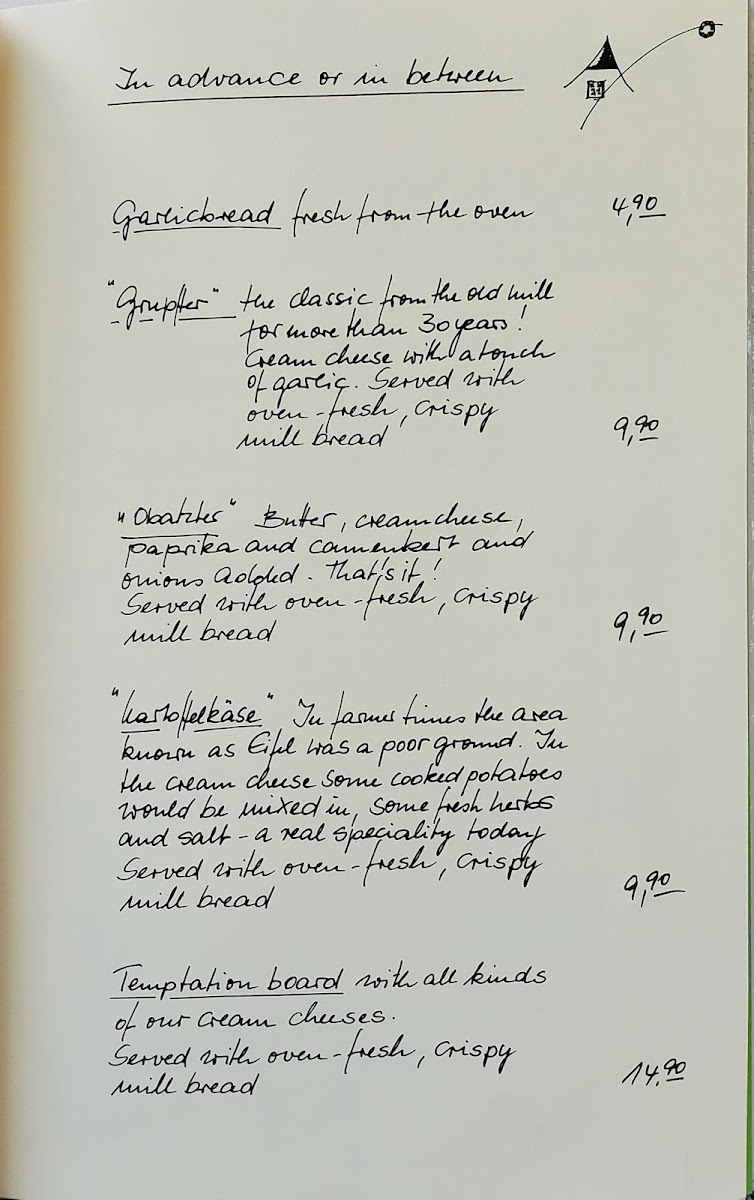 In advance or in between
Garlicbread fresh from the oven 4,90
"Grupfter" the classic from the old mill
for more than 30 years!
Cream cheese with a touch
of garlic. Served with
oven-fresh, crispy
mill bread 9,90
"Obatzter" Butter, creamcheese,
paprika and camenbert and
onions added. That's it!
Served with oven-fresh, crispy
mill bread 9,90
"Kartoffelkäse" In farmer times the area
known as Eifel was a poor ground. In
the cream cheese some cooked potatoes
would be mixed in, some fresh herbs
and salt - a real speciality today
Served with oven-fresh, crispy
mill bread 9,90
Temptation board with all kinds
of our cream cheeses.
Served with oven-fresh, crispy
mill bread 14,90